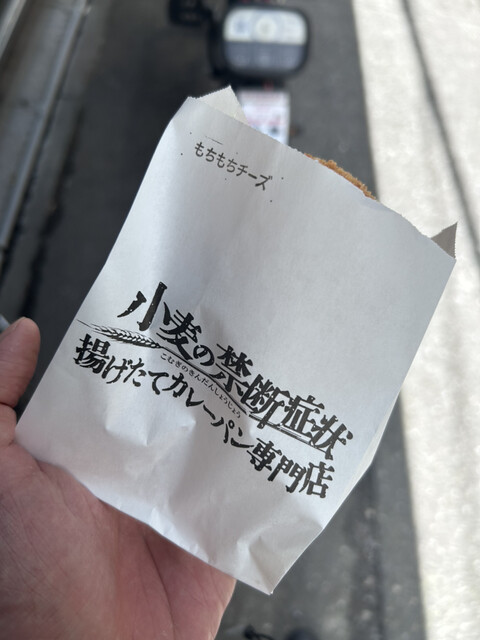 もちもちチーズ
小麦の禁断症状
こむぎのきんだんしょうじょう
揚げたてカレーパン専門店